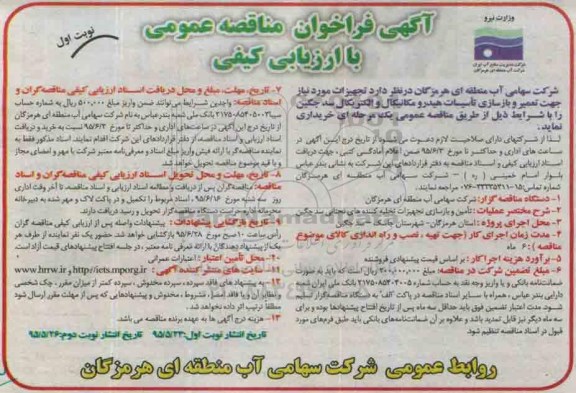 وزارت نیرو
آگهی فراخوان مناقصه عمومی
با ارزیابی کیفی
نوبت اول
شرکت سهامی آب منطقه ای هرمزگان در نظر دارد تجهیزات مورد نیاز
جهت تعمیر و بازسازی تأسیسات هیدرو مکانیکال و الکتریکال سد جگین
را با شرایط ذیل از طریق مناقصه عمومی یک مرحله ای خریداری
نماید:
لذا از شرکتهای دارای صلاحیت لازم دعوت می شود از تاریخ درج این آگهی در
ساعت های اداری و حداکثر تا مورخ ۹۵/۶/۲ ضمن اعلام آمادگی کتبی، جهت دریافت
اسناد ارزیابی کیفی و اسناد مناقصه به دفتر قراردادهای این شرکت به نشانی بندرعباس
بلوار امام خمینی (ره) – شرکت سهامی آب منطقه ای هرمزگان
مراجعه نمایند.
۱- دستگاه مناقصه گزار: شرکت سهامی آب منطقه ای هرمزگان
۲- شرح مختصر عملیات: تأمین و بازسازی تجهیزات تخلیه کننده های تحتانی سد جگین
۳- محل اجرای پروژه: استان هرمزگان- شهرستان جاسک- سد جگین
۴- مدت زمان اجرای کار (جهت تهیه، نصب و راه اندازی کالای موضوع
مناقصه): ۶ ماه
۵- برآورد هزینه اجرا کار: بر اساس قیمت پیشنهادی فروشنده
۶- مبلغ تضمین شرکت در مناقصه: مبلغ ریال است که باید به صورت
ضمانتنامه بانکی و یا واریز وجه نقد به شماره حساب بانک ملی ایران شعبه
دارایی بندرعباس، همراه با سایر اسناد مناقصه در پاکت "الف" به دستگاه مناقصه گزار تسلیم
شود. مدت اعتبار تضمین فوق باید حداقل سه ماه پس از تاریخ افتتاح پیشنهادها بوده و برای
سه ماه دیگر نیز قابل تمدید باشد و علاوه بر آن ضمانتنامه های بانکی باید طبق فرم های مورد
قبول در اسناد مناقصه تنظیم شود.
۷- تاریخ، مهلت، مبلغ و محل دریافت اسناد ارزیابی کیفی مناقصه گران و
اسناد مناقصه: واجدین شرایط می توانند ضمن واریز مبلغ ۵۰۰,۰۰۰ ریال به شماره حساب
سیبا بانک ملی شعبه بندرعباس به نام شرکت سهامی آب منطقه ای هرمزگان
از تاریخ درج این آگهی در ساعت های اداری و حداکثر تا مورخ ۹۵/۶/۲ نسبت به خرید و دریافت
اسناد ارزیابی و اسناد مناقصه از دفتر قراردادهای این شرکت اقدام نمایند. اسناد مذکور فقط به
نماینده مناقصه گر با ارائه فیش واریز مبلغ اسناد و معرفی نامه معتبر شرکت با مهر و امضای مجاز
و با قید موضوع مناقصه تحویل خواهد شد.
۸- تاریخ، مهلت و محل تحویل اسناد ارزیابی کیفی مناقصه گران و اسناد
مناقصه: مناقصه گران پس از دریافت و مطالعه اسناد ارزیابی و اسناد مناقصه، تا آخر وقت اداری
روز سه شنبه مورخ ۹۵/۶/۱۶، اسناد مربوط را تکمیل و در پاکت لاک و مهر شده به دبیرخانه
محرمانه اداره حراست دستگاه مناقصه گزار تحویل و رسید دریافت دارند.
۹- تاریخ بازگشایی پیشنهادات: پیشنهادات واصله پس از ارزیابی کیفی مناقصه گران
رأس ساعت ۱۰ صبح مورخ ۹۵/۶/۲۸ بازگشایی خواهند شد. حضور یک نفر نماینده از طرف هر
یک از پیشنهاد دهندگان با ارائه معرفی نامه معتبر، در جلسه افتتاح پیشنهادهای قیمت آزاد است.
۱۰- محل تأمین اعتبار: اعتبارات عمرانی
۱۱- سایت های منتشر کننده آگهی: http://iets.mporg.ir و www.hrrw.ir
۱۲- به پیشنهاد های فاقد سپرده، سپرده مخدوش، سپرده کمتر از میزان مقرر، چک شخصی
و نظایر آن و یا فاقد امضاء، مشروط، مخدوش و پیشنهادهایی که پس از مهلت مقرر ارسال شود
مطلقا ترتیب اثر داده نخواهد شد.
۱۳- هزینه درج آگهی ها به عهده برنده مناقصه می باشد.
تاریخ انتشار نوبت اول: ۹۵/۵/۲۳ تاریخ انتشار نوبت دوم: ۹۵/۵/۲۶
روابط عمومی شرکت سهامی آب منطقه ای هرمزگان